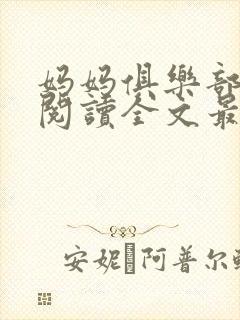 妈妈俱樂部
閱讀全文最
安妮 阿普尔